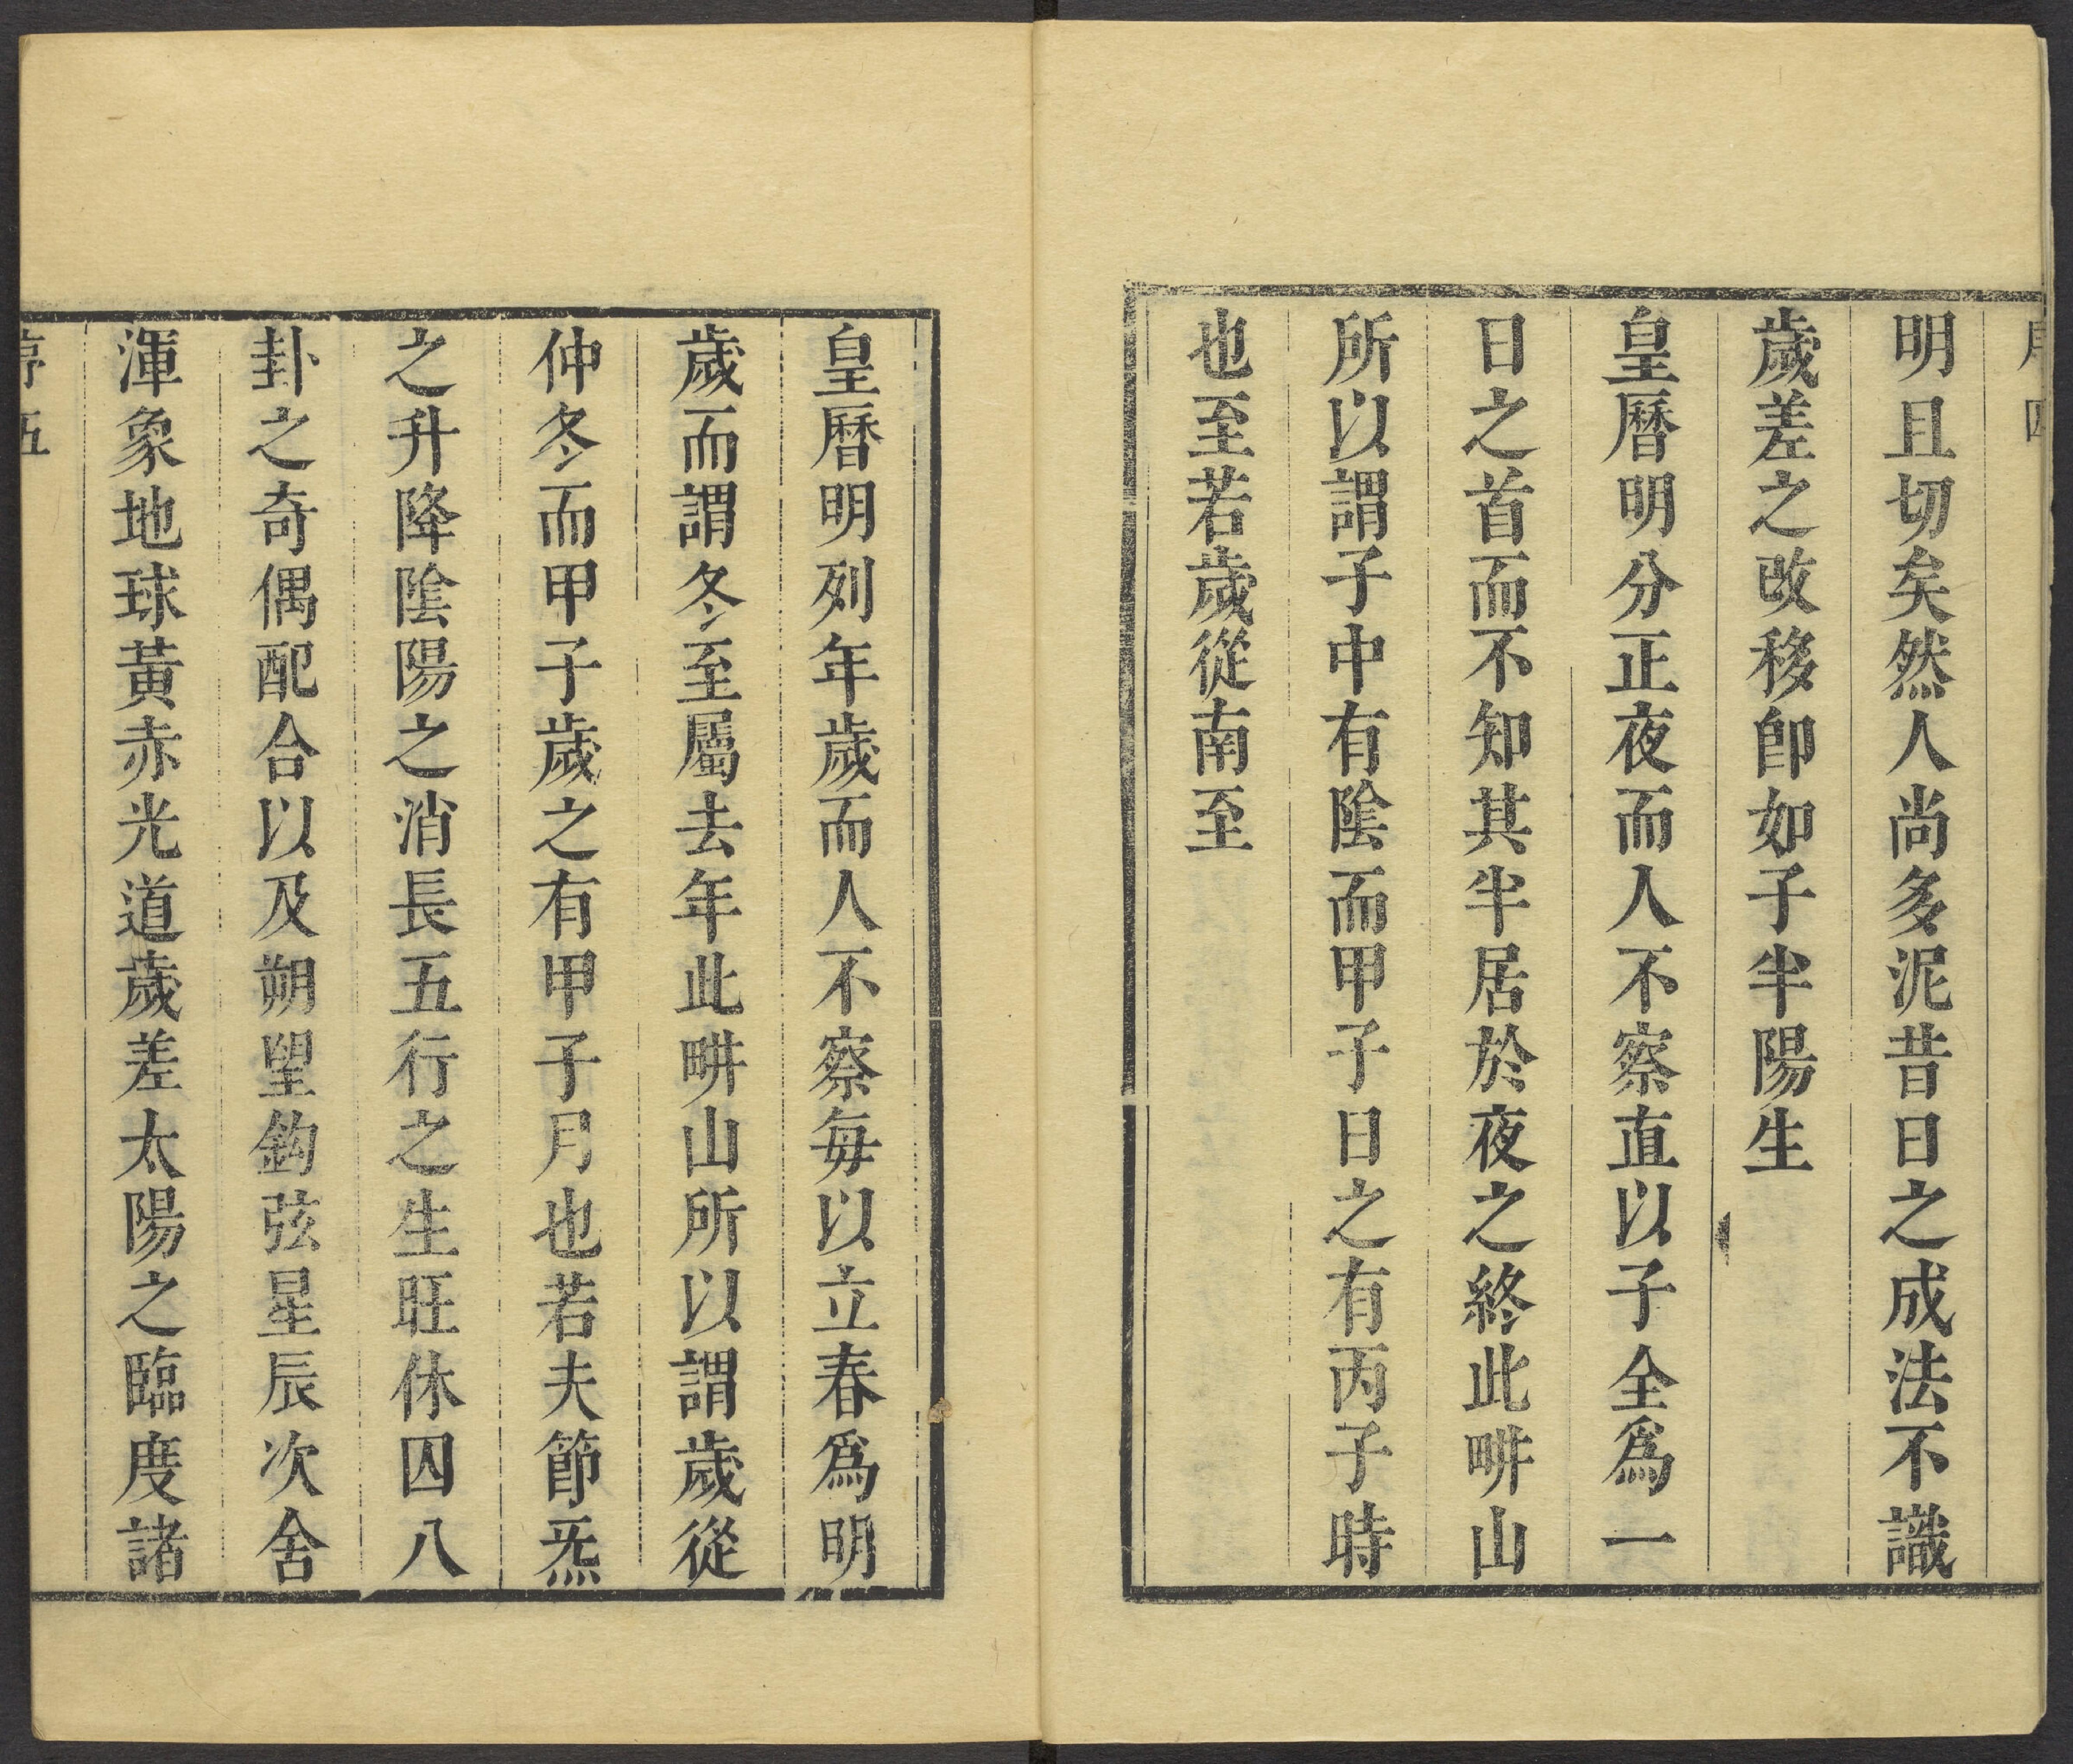 明且切矣然人尚多泥昔日之成法不識
歲差之改移卽如子半陽生
皇曆明分正夜而人不察直以子全爲一
日之首而不知其半居於夜之終此畊山
所以謂子中有隂而甲子日之有丙子時
也至若歲從南至
皇曆明列年歲而人不察每以立春爲明
歲而謂冬至屬去年此畊山所以謂歲從
仲冬而甲子歲之有甲子月也若夫節炁
之升降隂陽之消長五行之生旺休囚八
卦之奇偶配合以及朔望鈎弦星辰次舍
渾象地球黃赤光道歲差太陽之臨度諸
序五